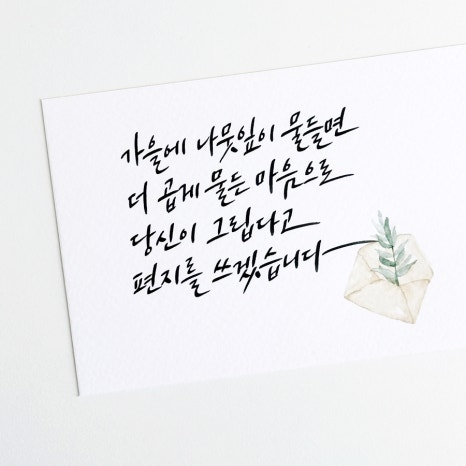 가을에 나뭇잎이 물들면
더 곱게 물든 마음으로
당신이 그립다고
편지를 쓰겠습니다